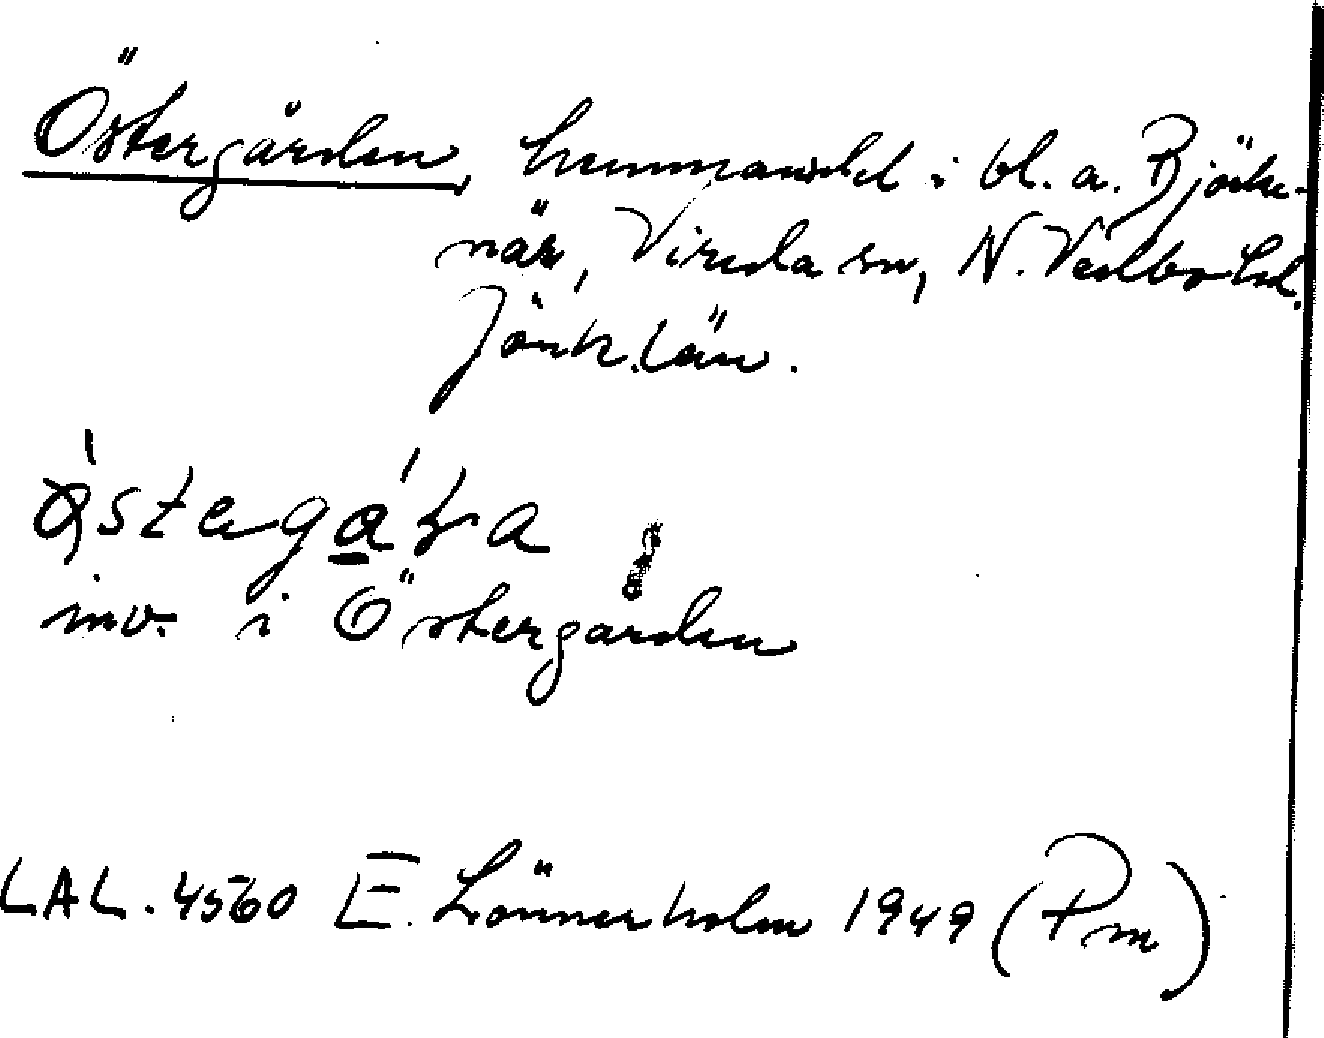 Östergården, hemmansdel i bl. a. Björke-
när, Vireda sn, N. Vedbo hd.
Jönk. län.
inv. i Östergården
LAL. 4560 E. Lönnerholm 1949 (Pm)